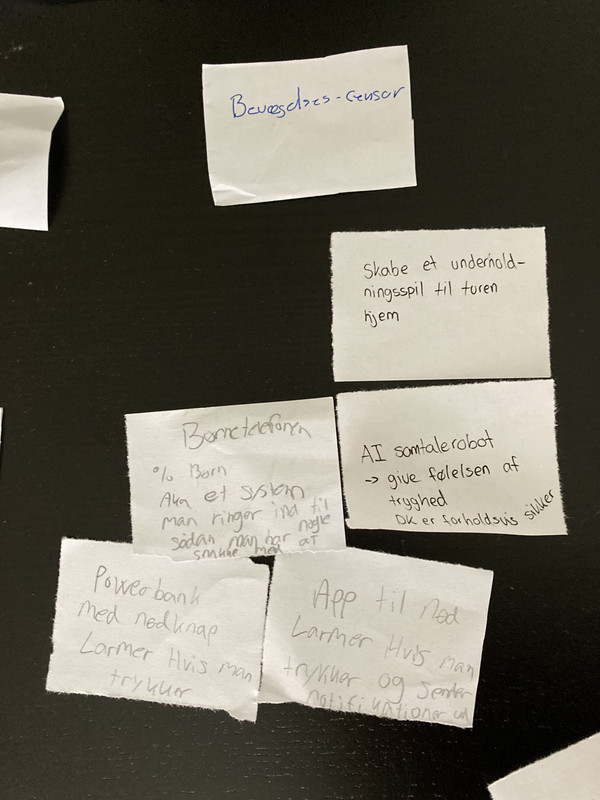 Bevægelses-censor
Skabe et underhold-
ningsspil til turen
hjem
AI samtalerobot
-> give følelsen af
tryghed
DK er forholdsvis sikker
Børnetelefonen
% Børn
Aka et system
man ringer ind til
sådan man har nogle
at snakke med
Powerbank
med nødknap
Larmer Hvis man
trykker
App til nød
Larmer Hvis man
trykker og sender
notifikationer ud